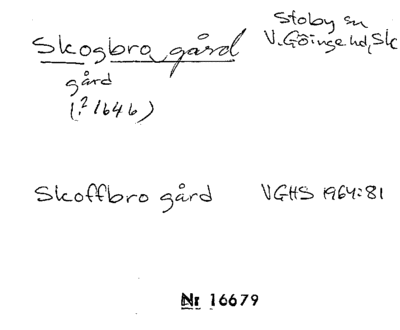 Skogbro gård
Stoby sn
V. Göinge hd, Sk
gård
(? 1646)
Skoffbro gård
VGHS 1964:81
Nr 16679